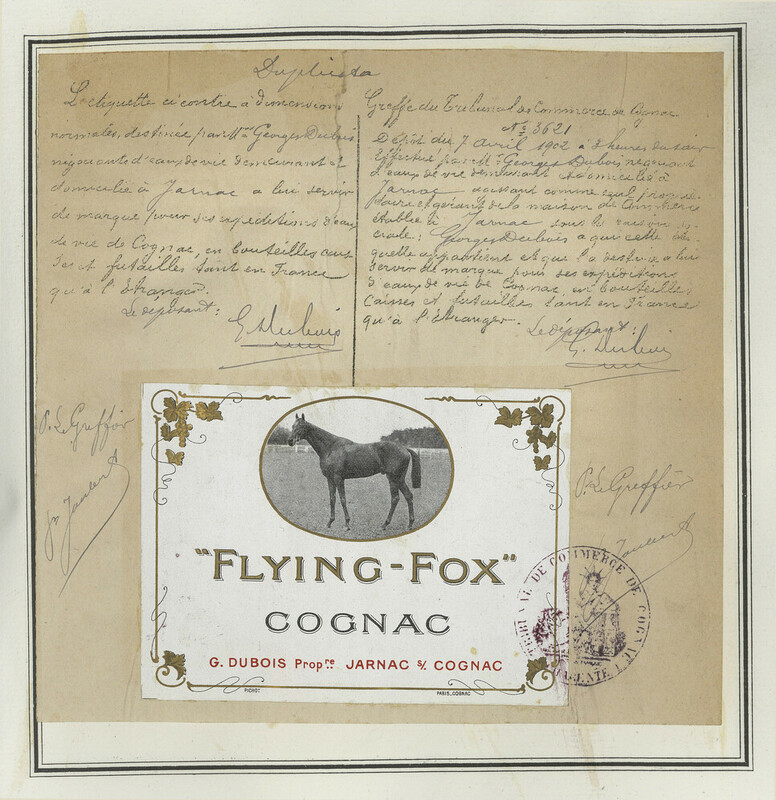 Duplicata
L'etiquette ci contre à dimensions
normales, destinée par Mr Georges Dubois
négociants d'eaux de vie demeurant et
domicilié à Jarnac a lui servir
de marque pour ses expeditions d'eaux
de vie de Cognac, en bouteilles caisses
et futailles tant en France
qu'à l'étranger.
Le déposant:
G. Dubois
Greffe du Tribunal de Commerce de Cognac
No 3621
Dépôt du 7 avril 1902 à 3 heures du soir
Effectué par Mr Georges Dubois négociant
d'eaux de vie demeurant et domicilié à
Jarnac agissant comme seul proprié-
taire et gérant de la maison de Commerce
établie à Jarnac sous la raison so-
ciale: Georges Dubois a qui cette éti-
quette appartient et que l'a destiné a lui
servir de marque pour ses expéditions
d'eaux de vie de Cognac, en bouteilles
caisses et futailles tant en France
qu'à l'étranger.
Le déposant:
G. Dubois
P. Le Greffier
Jaulent
P. Le Greffier
Jaulent
"FLYING-FOX"
COGNAC
G. DUBOIS Propre JARNAC S/ COGNAC
PICHOT
PARIS_COGNAC
TRIBUNAL DE COMMERCE DE COGNAC